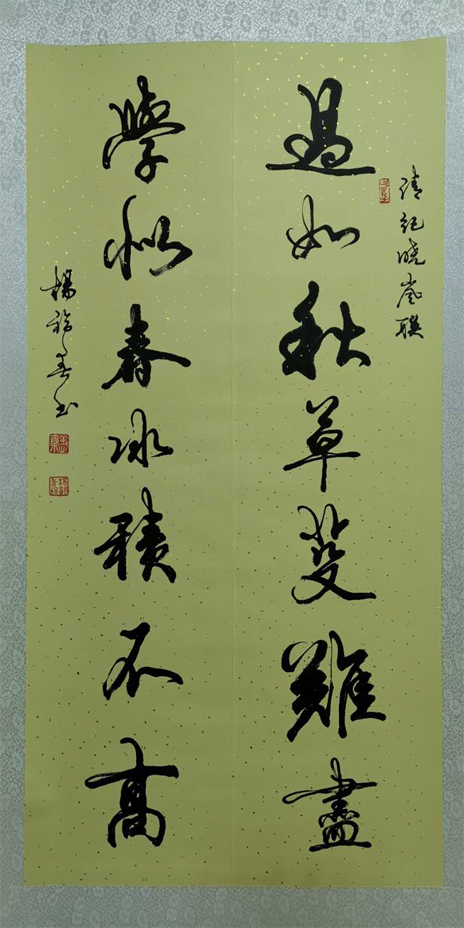 清紀曉嵐聯
過如秋草芟難盡
學似春冰積不高
楊書